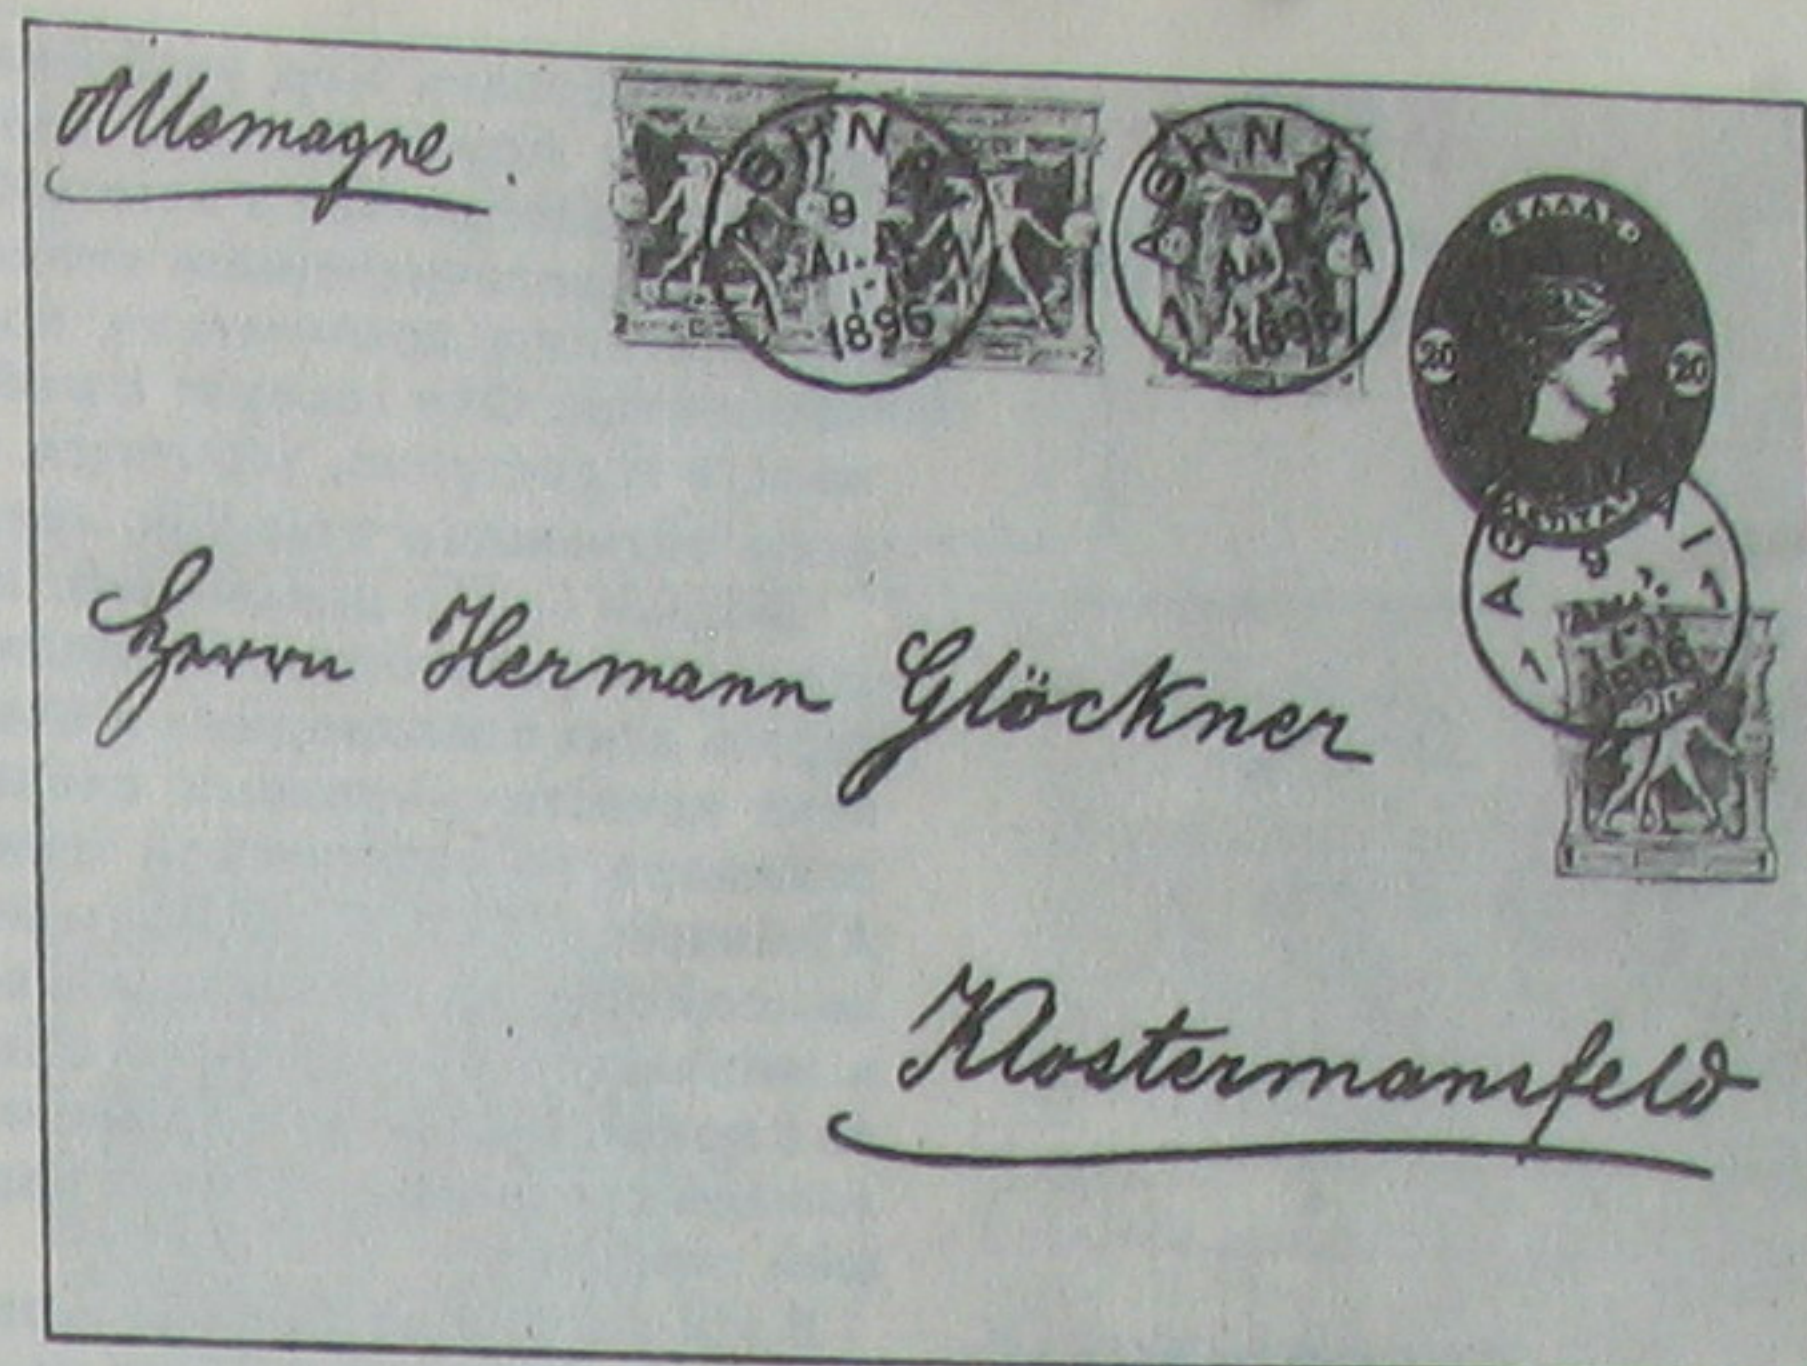 Allemagne
ΑΘΗΝΑΙ
9
1896
ΑΘΗΝΑΙ
9
1896
ΕΛΛΑΣ
20 20
ΛΕΠΤΑ
9
1896
2 2
1 1
Herrn Hermann Glöckner
Klostermansfeld